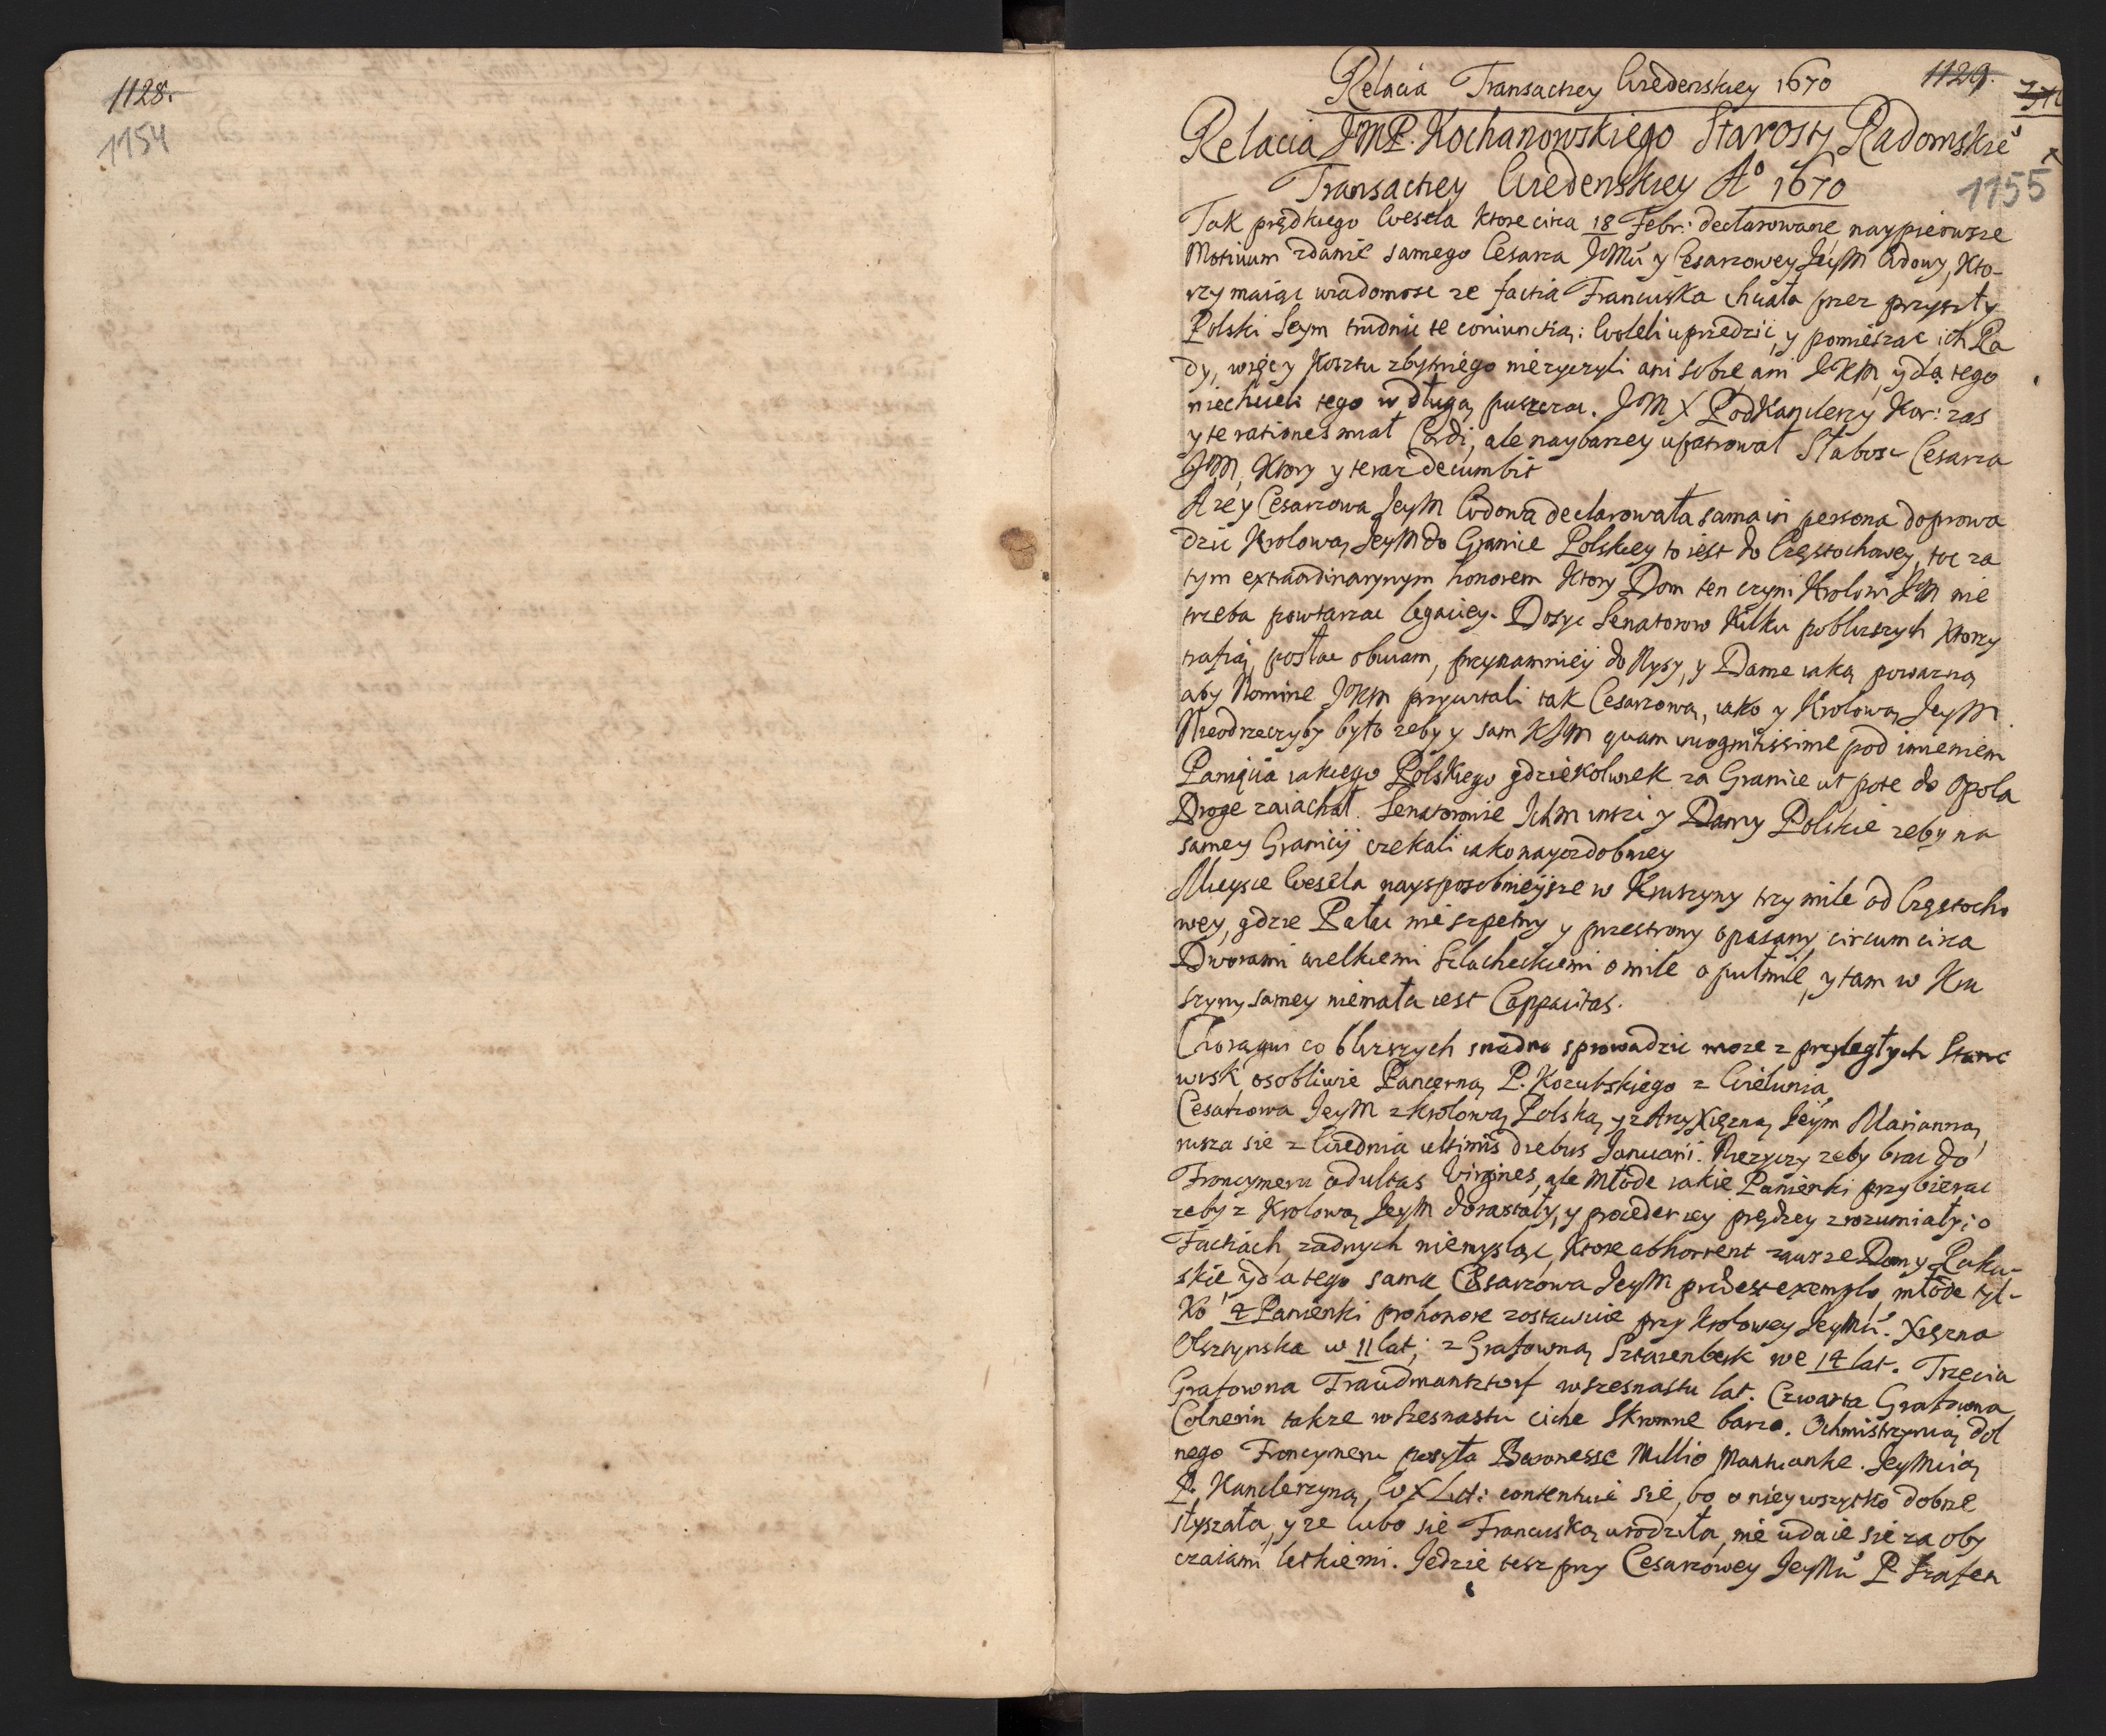 1128.
1154
Relacia Transactiey Wiedenskiey 1670
1129.
Relacia JMP. Kochanowskiego Starosty Radomskie͡o
Transactiey Wiedenskiey A° 1670
1155
Tak prędkiego Wesela ktore circa 18 Febr: declarowane naypierwsze
Motivum zdanie samego Cesarza JMci y Cesarzowey JeyM Wdowy, Kto-
rzy maiąc wiadomosc ze factia Francuska chciała przez przyszły
Polski Seym trudnic te coniunctią: Woleli uprzedzic, y pomieszac ich Ra
dy, więcy Kosztu zbytniego nieżyczyli ani sobie, ani JKM, y dla tego
niechcieli tego w długą puszczac. JM X PodKanclerzy Kor: zas
y te rationes miał Cordi, ale naybarzey upatrował Słabosc Cesarza
JM, Ktory y teraz decumbit
A ze y Cesarzowa JeyM Wdowa declarowała sama in persona doprowa
dzic Krolową JeyM do Granice Polskiey to iest do Częstochowey, toc za
tym extraordinarynym honorem Ktory Dom ten czyni Krolowi JM nie
trzeba powtarzac legaciey. Dosyc Senatorow Kilku pobliszych Ktorzy
trafią, posłac obwiam, przynamniey do Nysy, y Dame iaką powazną
aby Nomine JKM przywitali tak Cesarzową, iako y Krolową JeyM.
Nieodrzeczyby było zeby y sam KJM quam incognitissime pod imieniem
Panięcia iakiego Polskiego gdziekolwiek za Granice ut pote do Opola
Droge zaiachał. Senatorowie IchM insi y Damy Polskie zeby na
samey Graniciy czekali iako nayozdobniey
Mieysce Wesela naysposobnieysze w Kruszyny trzy mile od Częstocho
wey, gdzie Pałac nie szpetny y przestrony opasany circum circa
Dworami wielkiemi Szlacheckiemi o mile o pułmile, y tam w Kru
szyny samey niemała iest Cappacitas.
Chorągwi co bliszszych snadno sprowadzic moze z przyległych Stano
wisk osobliwie Pancerną P. Kozubskiego z Wielunia
Cesarzowa JeyM z Krolową Polską, y z ArcyXięzną Jeym Marianną,
rusza sie z Wiednia ultimis diebus Januarii. Nieżyczy zeby brac do
Francymeru adultas Virgines, ale Młode iakie Panienki przybierac
zeby z Krolową JeyM dorastały, y proceder iey prędzey zrozumiały; o
Factiach zadnych niemysląc, Ktore abhorrent zawsze Domy Raku-
skie, y dla tego sama Cesarzowa JeyM praeest exemplo, młode tyl-
ko 4 Panienki pro honore zostawuie przy Krolowey JeyMci. Xięzna
Olsztynska w 11 lat; 2 Grafowną Sztarenberk we 14 lat. Trzecia
Grafowna Traudmansztorf w szesnastu lat. Czwarta Grafowna
Colnerin takze w szesnastu ciche Skromne barzo. Ochmistrzynią dol
nego Francymeru posyła Baronesse Millio Mantuanke. JeyMcią
P. Kanclerzyną WXLit: contentuie sie, bo o niey wszytko dobrze
słyszała, y ze lubo sie Francuską urodziła, nie udaie sie za oby
czaiami letkiemi. Jedzie tesz przy Cesarzowey JeyMci P.